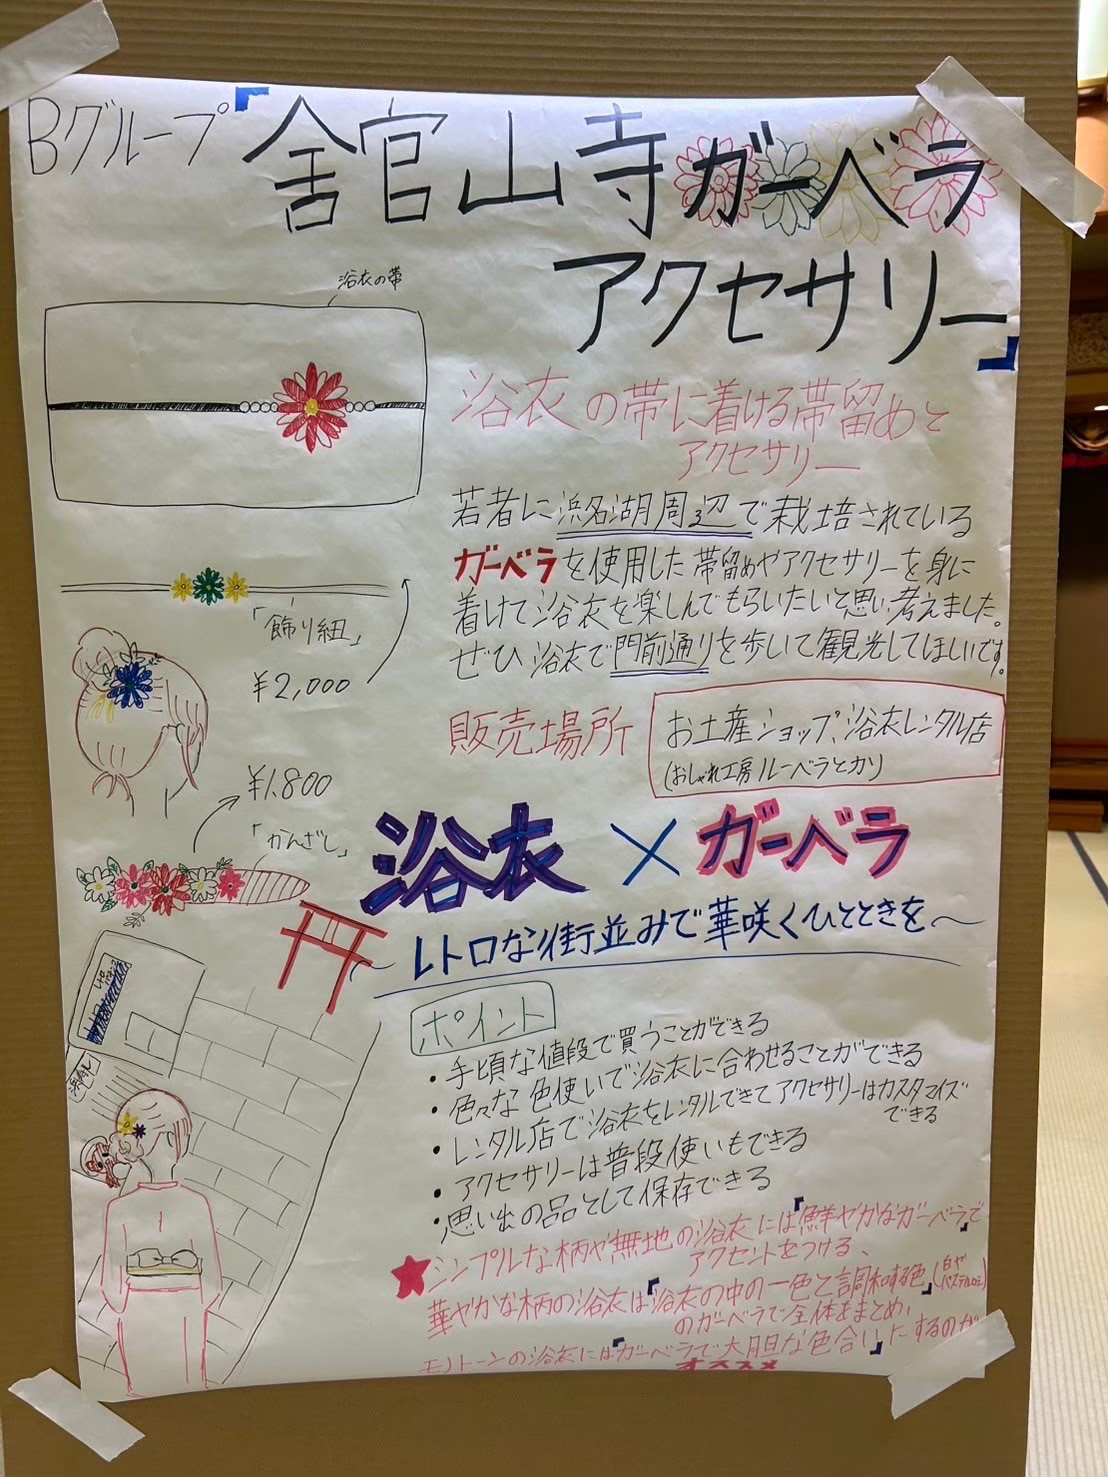 Bグループ
「舎官山寺ガーベラ
アクセサリー」
浴衣の帯
浴衣の帯に着ける帯留めと
アクセサリー
若者に浜名湖周辺で栽培されている
ガーベラを使用した帯留めやアクセサリーを身に
着けて浴衣を楽しんでもらいたいと思い考えました。
ぜひ浴衣で門前通りを歩いて観光してほしいです。
「飾り紐」
¥2,000
販売場所
お土産ショップ、浴衣レンタル店
(おしゃれ工房ルーベラとカリ)
¥1.800
「かんざし」
浴衣×ガーベラ
〜レトロな街並みで華咲くひとときを〜
レトロ
ポイント
・手頃な値段で買うことができる
・色々な色使いで浴衣に合わせることができる
・レンタル店で浴衣をレンタルできてアクセサリーはカスタマイズ
できる
・アクセサリーは普段使いもできる
・思い出の品として保存できる
★シンプルな柄や無地の浴衣には「鮮やかなガーベラ」で
アクセントをつける、
華やかな柄の浴衣は「浴衣の中の一色と調和する色」(白や
パステルカラー)
のガーベラで全体をまとめ、
モノトーンの浴衣には「ガーベラで大胆な色合い」にするのが
オススメ